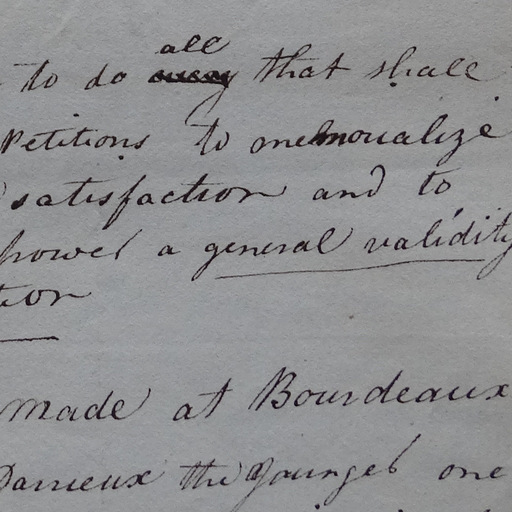 all
to do away that shall
Petitions to memorialize
satisfaction and to
power a general validity
tion
made at Bourdeaux
Darrieux the younger one